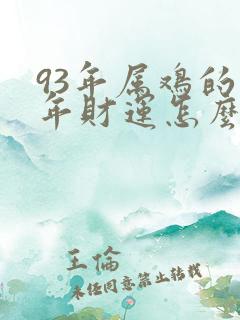 93年属鸡的
年财运怎麽
王倫
未经同意禁止转载